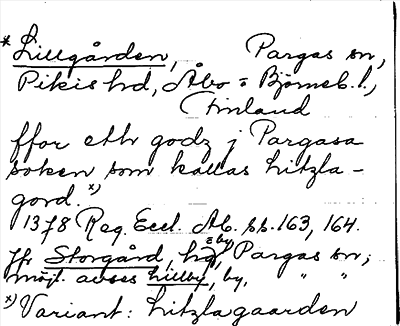 * Lillgården, Pargas sn,
Pikis hd, Åbo = Björneb. l.,
Finland
ffor eth godz j Pargasa
soken som kallas Litzla-
gord. x)
1378 Reg. Eccl. Ab. ss. 163, 164.
Jfr Storgård, hg =by, Pargas sn;
möjl. avses Lillby, by, " "
x) Variant: Litzlagaarden